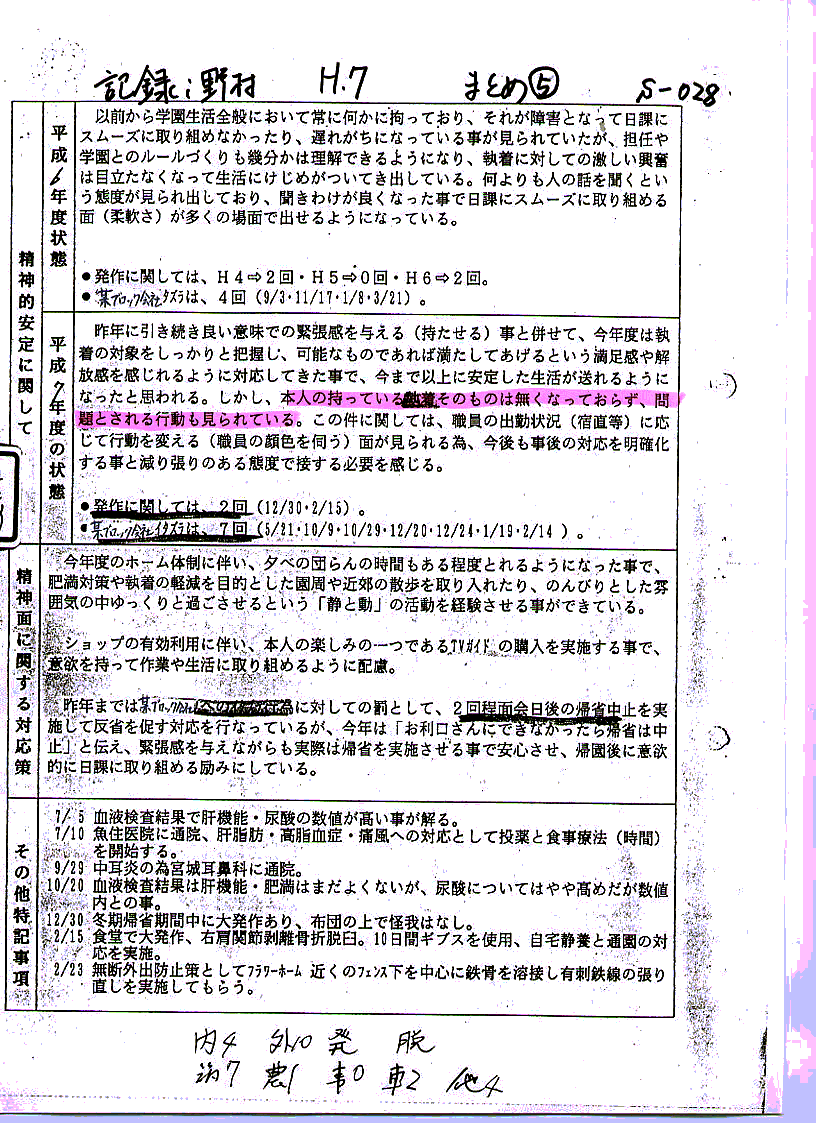 記録:野村 H.7 まとめ⑤ S-028
精神的安定に関して
平成6年度状態
以前から学園生活全般において常に何かに拘っており、それが障害となって日課に
スムーズに取り組めなかったり、遅れがちになっている事が見られていたが、担任や
学園とのルールづくりも幾分かは理解できるようになり、執着に対しての激しい興奮
は目立たなくなって生活にけじめがついてき出している。何よりも人の話を聞くとい
う態度が見られ出しており、聞きわけが良くなった事で日課にスムーズに取り組める
面(柔軟さ)が多くの場面で出せるようになっている。
●発作に関しては、H4⇨2回・H5⇨0回・H6⇨2回。
●某ブロック会社イタズラは、4回(9/3・11/17・1/8・3/21)。
平成7年度の状態
昨年に引き続き良い意味での緊張感を与える(持たせる)事と併せて、今年度は執
着の対象をしっかりと把握し、可能なものであれば満たしてあげるという満足感や解
放感を感じれるように対応してきた事で、今まで以上に安定した生活が送れるように
なったと思われる。しかし、本人の持っている執着そのものは無くなっておらず、問
題とされる行動も見られている。この件に関しては、職員の出勤状況(宿直等)に応
じて行動を変える(職員の顔色を伺う)面が見られる為、今後も事後の対応を明確化
する事と減り張りのある態度で接する必要を感じる。
●発作に関しては、2回(12/30・2/15)。
●某ブロック会社イタズラは、7回(5/21・10/9・10/29・12/20・12/24・1/19・2/14)。
精神面に関する対応策
今年度のホーム体制に伴い、夕べの団らんの時間もある程度とれるようになった事で、
肥満対策や執着の軽減を目的とした園周や近郊の散歩を取り入れたり、のんびりとした雰
囲気の中ゆっくりと過ごさせるという「静と動」の活動を経験させる事ができている。
ショップの有効利用に伴い、本人の楽しみの一つであるTVガイドの購入を実施する事で、
意欲を持って作業や生活に取り組めるように配慮。
昨年までは某ブロック会社へのイタズラ行為に対しての罰として、2回程面会日後の帰省中止を実
施して反省を促す対応を行なっているが、今年は「お利口さんにできなかったら帰省は中
止」と伝え、緊張感を与えながらも実際は帰省を実施させる事で安心させ、帰園後に意欲
的に日課に取り組める励みにしている。
その他特記事項
7/5 血液検査結果で肝機能・尿酸の数値が高い事が解る。
7/10 魚住医院に通院、肝脂肪・高脂血症・痛風への対応として投薬と食事療法(時間)
を開始する。
9/29 中耳炎の為宮城耳鼻科に通院。
10/20 血液検査結果は肝機能・肥満はまだよくないが、尿酸についてはやや高めだが数値
内との事。
12/30 冬期帰省期間中に大発作あり、布団の上で怪我はなし。
2/15 食堂で大発作、右肩関節剥離骨折脱臼。10日間ギブスを使用、自宅静養と通園の対
応を実施。
2/23 無断外出防止策としてフラワーホーム 近くのフェンス下を中心に鉄骨を溶接し有刺鉄線の張り
直しを実施してもらう。
内4 外10 発 脱
7 農1 韋0 車2 他4